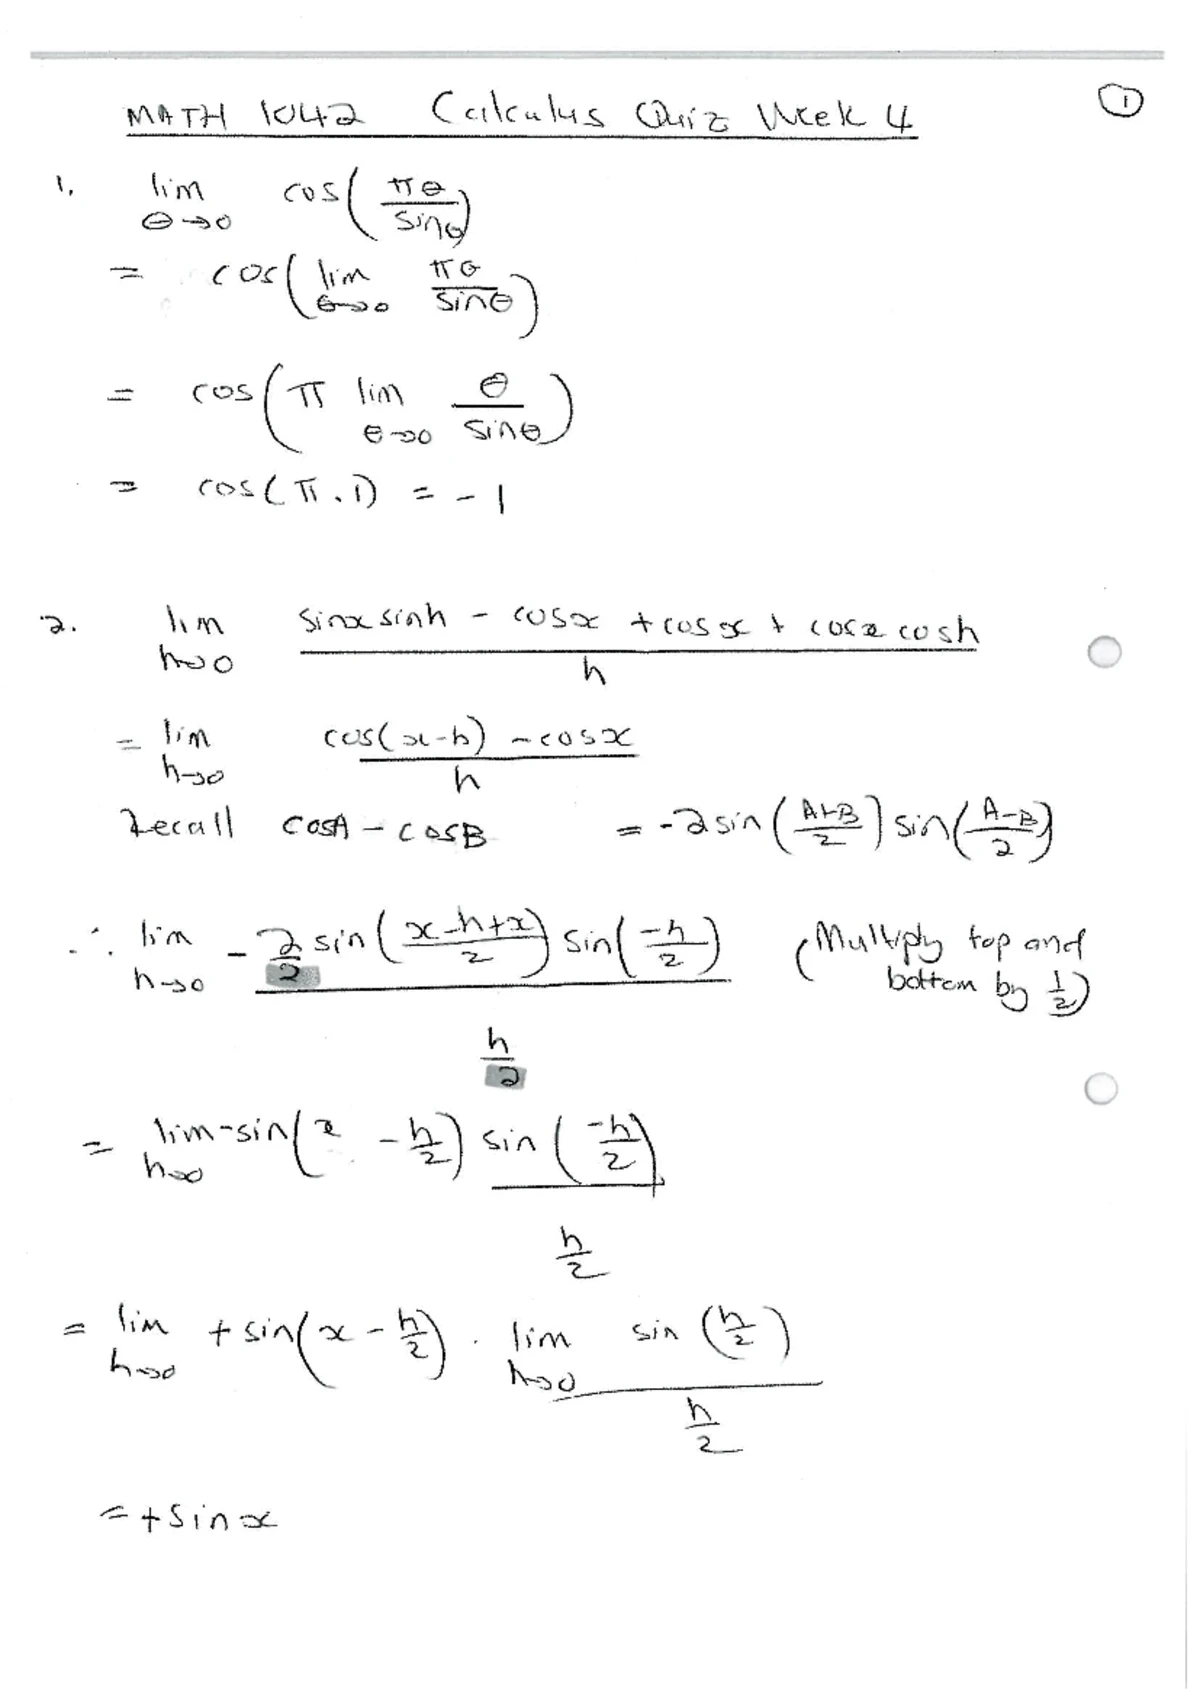 MATH 1042 Calculus Quiz Week 4 ①
1. lim θ→0 cos(πθ/sinθ)
= cos(lim θ→0 πθ/sinθ)
= cos(π lim θ→0 θ/sinθ)
= cos(π.1) = -1
2. lim h→0 (sinx sinh - cosx + cosx + cosx cosh)/h
= lim h→0 (cos(x-h) - cosx)/h
Recall cosA - cosB = -2sin((A+B)/2) sin((A-B)/2)
∴ lim h→0 (-2/2 sin((x-h+x)/2) sin(-h/2))/(h/2) (Multiply top and bottom by 1/2)
= lim h→0 -sin(x - h/2) sin(-h/2)/(h/2)
= lim h→0 +sin(x - h/2) . lim h→0 sin(h/2)/(h/2)
= +sinx